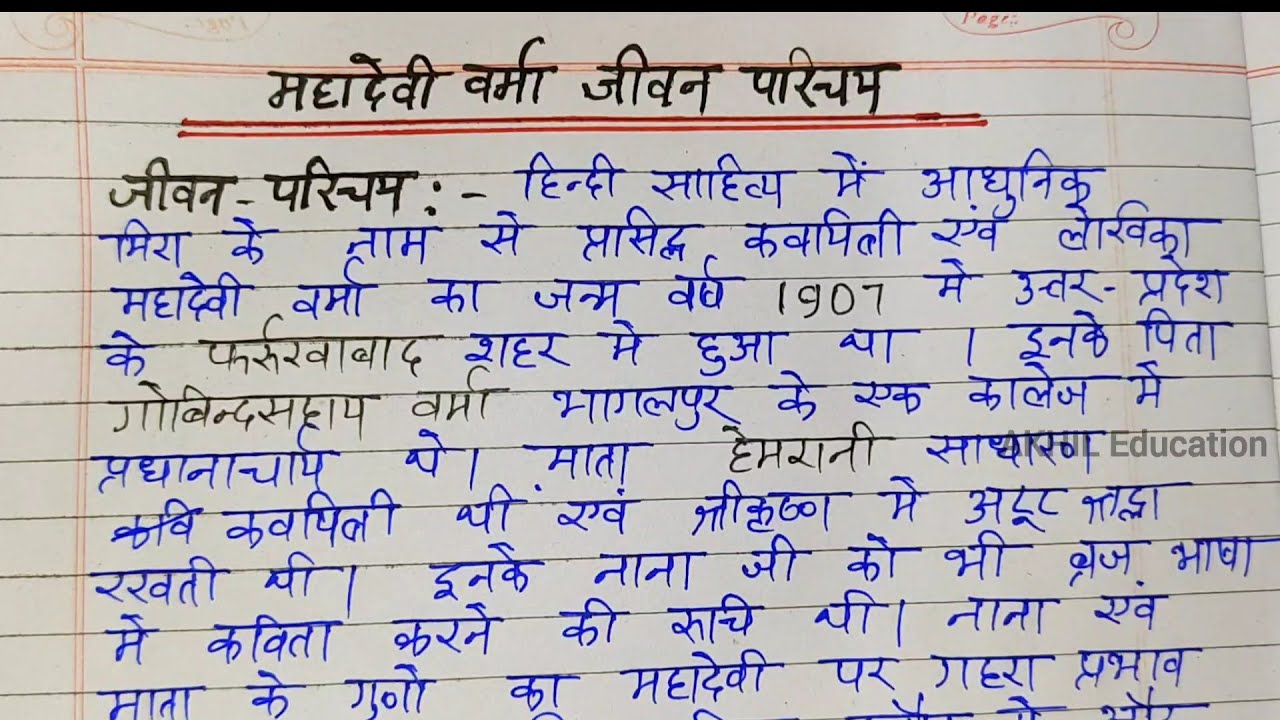 Page:
महादेवी वर्मा जीवन परिचय
जीवन-परिचय :- हिन्दी साहित्य में आधुनिक
मिरा के नाम से प्रसिद्ध कवयित्री एवं लेखिका
महादेवी वर्मा का जन्म वर्ष 1907 मे उत्तर-प्रदेश
के फर्रुखाबाद शहर मे हुआ था । इनके पिता
गोविन्दसहाय वर्मा भागलपुर के एक कालेज मे
प्रधानाचार्य थे। माता हेमरानी साधारण
AKHIL Education
कवि कवयित्री थी एवं श्रीकृष्ण मे अटूट श्रद्धा
रखती थी। इनके नाना जी को भी ब्रज भाषा
मे कविता करने की रुचि थी। नाना एवं
माता के गुणो का महादेवी पर गहरा प्रभाव